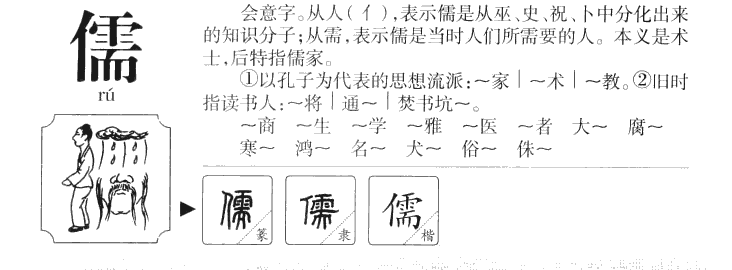 儒
rú
会意字。从人(亻),表示儒是从巫、史、祝、卜中分化出来
的知识分子;从需,表示儒是当时人们所需要的人。本义是术
士,后特指儒家。
①以孔子为代表的思想流派:～家｜～术｜～教。②旧时
指读书人:～将｜通～｜焚书坑～。
～商 ～生 ～学 ～雅 ～医 ～者 大～ 腐～
寒～ 鸿～ 名～ 犬～ 俗～ 侏～
儒 篆 儒 隶 儒 楷